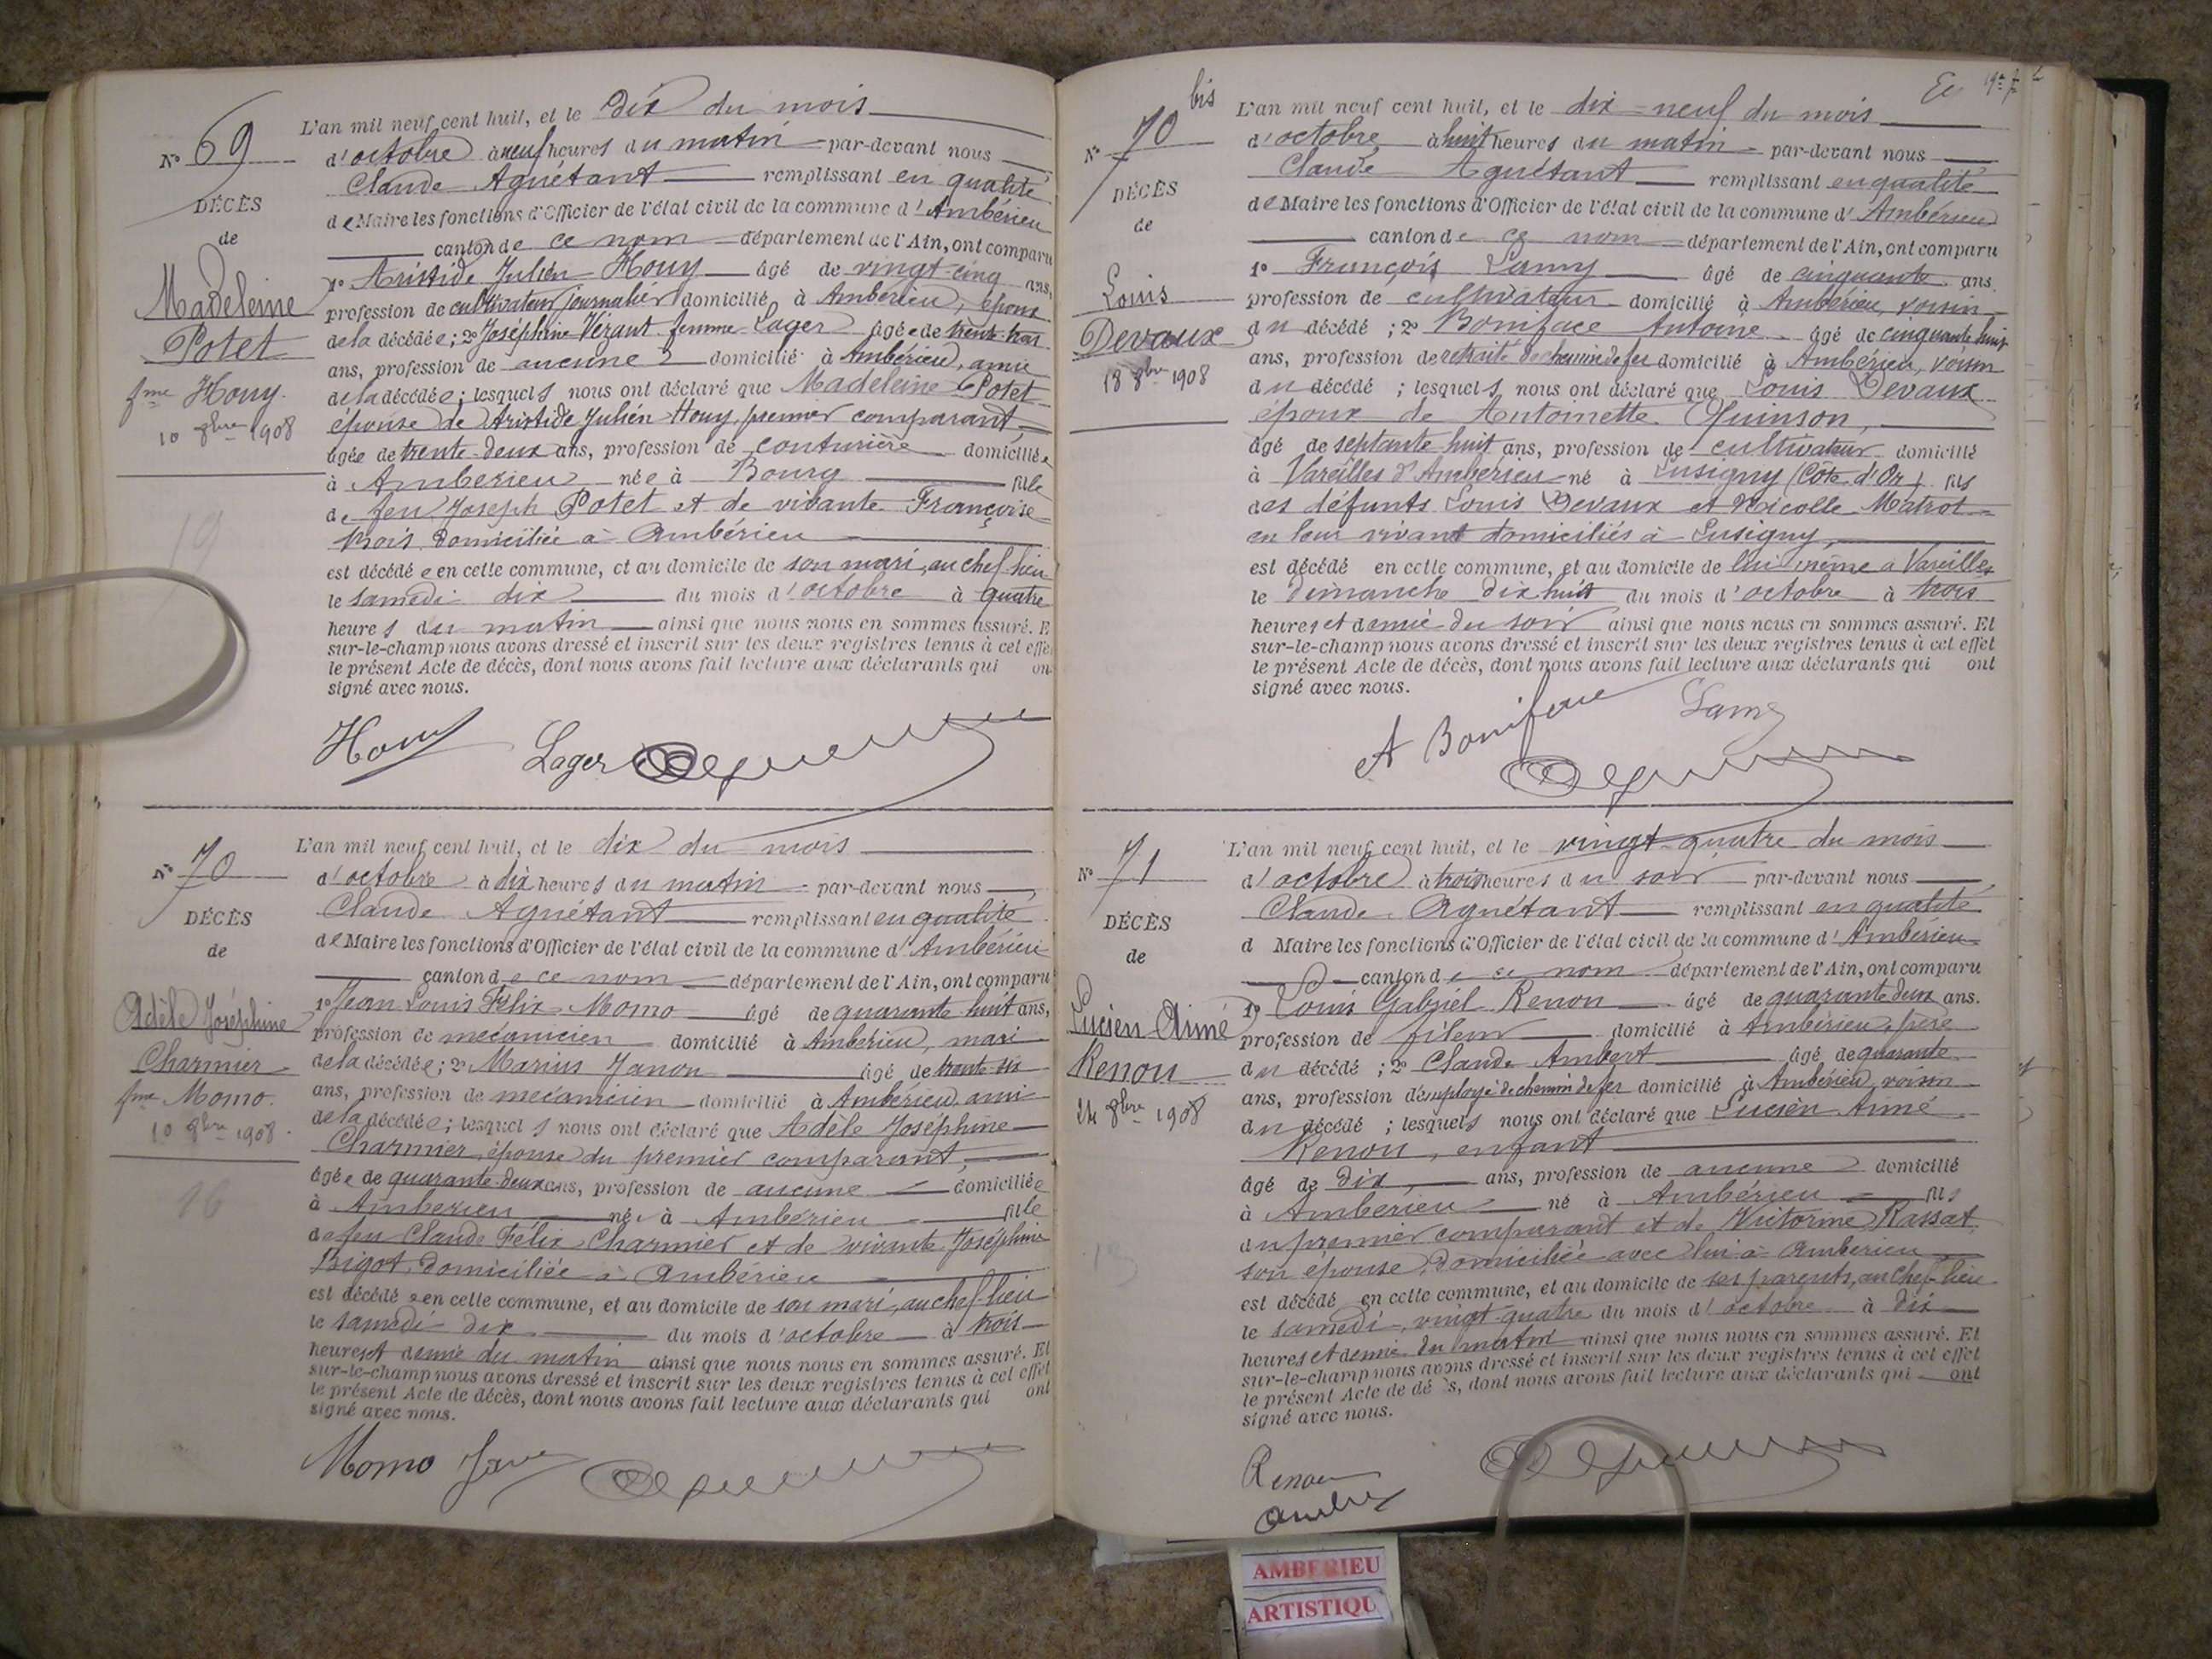 N° 69
DÉCÈS
de
Madeleine
Potet
fme Houy.
10 8bre 1908
19
L'an mil neuf cent huit, et le dix du mois
d'octobre à neuf heures du matin par-devant nous
Claude Aguétant remplissant en qualité
de Maire les fonctions d'Officier de l'état civil de la commune d'Ambérieu
canton de ce nom département de l'Ain, ont comparu
1° Aristide Julien Houy âgé de vingt-cinq ans,
profession de cultivateur journalier domicilié à Ambérieu, époux
de la décédée; 2° Joséphine Vérant femme Lager âgée de trente-trois
ans, profession de aucune domicilié à Ambérieu, amie
de la décédée; lesquels nous ont déclaré que Madeleine Potet
épouse de Aristide Julien Houy, premier comparant,
âgée de trente-deux ans, profession de couturière domiciliée
à Ambérieu née à Bourg fille
de feu Joseph Potet et de vivante Françoise
Bois, domiciliée à Ambérieu
est décédée en cette commune, et au domicile de son mari, au chef-lieu
le samedi dix du mois d'octobre à quatre
heures du matin ainsi que nous nous en sommes assuré. E
sur-le-champ nous avons dressé et inscrit sur les deux registres tenus à cet effe
le présent Acte de décès, dont nous avons fait lecture aux déclarants qui on
signé avec nous.
Houy Lager
N° 70
DÉCÈS
de
Adèle Joséphine
Charmier
fme Momo.
10 8bre 1908.
16
L'an mil neuf cent huit, et le dix du mois
d'octobre à dix heures du matin par-devant nous
Claude Aguétant remplissant en qualité
de Maire les fonctions d'Officier de l'état civil de la commune d'Ambérieu
canton de ce nom département de l'Ain, ont comparu
1° Jean Louis Félix Momo âgé de quarante-huit ans,
profession de mécanicien domicilié à Ambérieu, mari
de la décédée; 2° Marius Janon âgé de trente-six
ans, profession de mécanicien domicilié à Ambérieu, ami
de la décédée; lesquels nous ont déclaré que Adèle Joséphine
Charmier, épouse du premier comparant,
âgée de quarante-deux ans, profession de aucune domiciliée
à Ambérieu née à Ambérieu fille
de feu Claude Félix Charmier et de vivante Joséphine
Bigot, domiciliée à Ambérieu
est décédée en cette commune, et au domicile de son mari, au chef-lieu
le samedi dix du mois d'octobre à trois
heures et demie du matin ainsi que nous nous en sommes assuré. Et
sur-le-champ nous avons dressé et inscrit sur les deux registres tenus à cet effet
le présent Acte de décès, dont nous avons fait lecture aux déclarants qui ont
signé avec nous.
Momo
N° 70 bis
DÉCÈS
de
Louis
Devaux
18 8bre 1908
L'an mil neuf cent huit, et le dix-neuf du mois
d'octobre à huit heures du matin par-devant nous
Claude Aguétant remplissant en qualité
de Maire les fonctions d'Officier de l'état civil de la commune d'Ambérieu
canton de ce nom département de l'Ain, ont comparu
1° François Lamy âgé de cinquante ans.
profession de cultivateur domicilié à Ambérieu, voisin
du décédé; 2° Boniface Antoine âgé de cinquante-huit
ans, profession de retraité de chemin de fer domicilié à Ambérieu, voisin
du décédé; lesquels nous ont déclaré que Louis Devaux
époux de Antoinette Quinson,
âgé de septante-huit ans, profession de cultivateur domicilié
à Vareilles d'Ambérieu né à Lusigny (Côte d'Or), fils
des défunts Louis Devaux et Nicolle Matrot
en leur vivant domiciliés à Lusigny,
est décédé en cette commune, et au domicile de lui-même à Vareilles
le dimanche dix-huit du mois d'octobre à trois
heures et demie du soir ainsi que nous nous en sommes assuré. Et
sur-le-champ nous avons dressé et inscrit sur les deux registres tenus à cet effet
le présent Acte de décès, dont nous avons fait lecture aux déclarants qui ont
signé avec nous.
A Boniface Lamy
N° 71
DÉCÈS
de
Lucien Aimé
Renon
24 8bre 1908
13
L'an mil neuf cent huit, et le vingt-quatre du mois
d'octobre à trois heures du soir par-devant nous
Claude Aguétant remplissant en qualité
d Maire les fonctions d'Officier de l'état civil de la commune d'Ambérieu
canton de ce nom département de l'Ain, ont comparu
1° Louis Gabriel Renon âgé de quarante-deux ans.
profession de fileur domicilié à Ambérieu, père
du décédé; 2° Claude Ambert âgé de quarante
ans, profession d'employé de chemin de fer domicilié à Ambérieu, voisin
du décédé; lesquels nous ont déclaré que Lucien Aimé
Renon, enfant
âgé de dix, ans, profession de aucune domicilié
à Ambérieu né à Ambérieu fils
du premier comparant et de Victorine Rassat
son épouse, domiciliée avec lui à Ambérieu
est décédé en cette commune, et au domicile de ses parents, au chef-lieu
le samedi, vingt-quatre du mois d'octobre à dix
heures et demie du matin ainsi que nous nous en sommes assuré. Et
sur-le-champ nous avons dressé et inscrit sur les deux registres tenus à cet effet
le présent Acte de dé s, dont nous avons fait lecture aux déclarants qui ont
signé avec nous.
Renon
AMBERIEU
ARTISTIQU